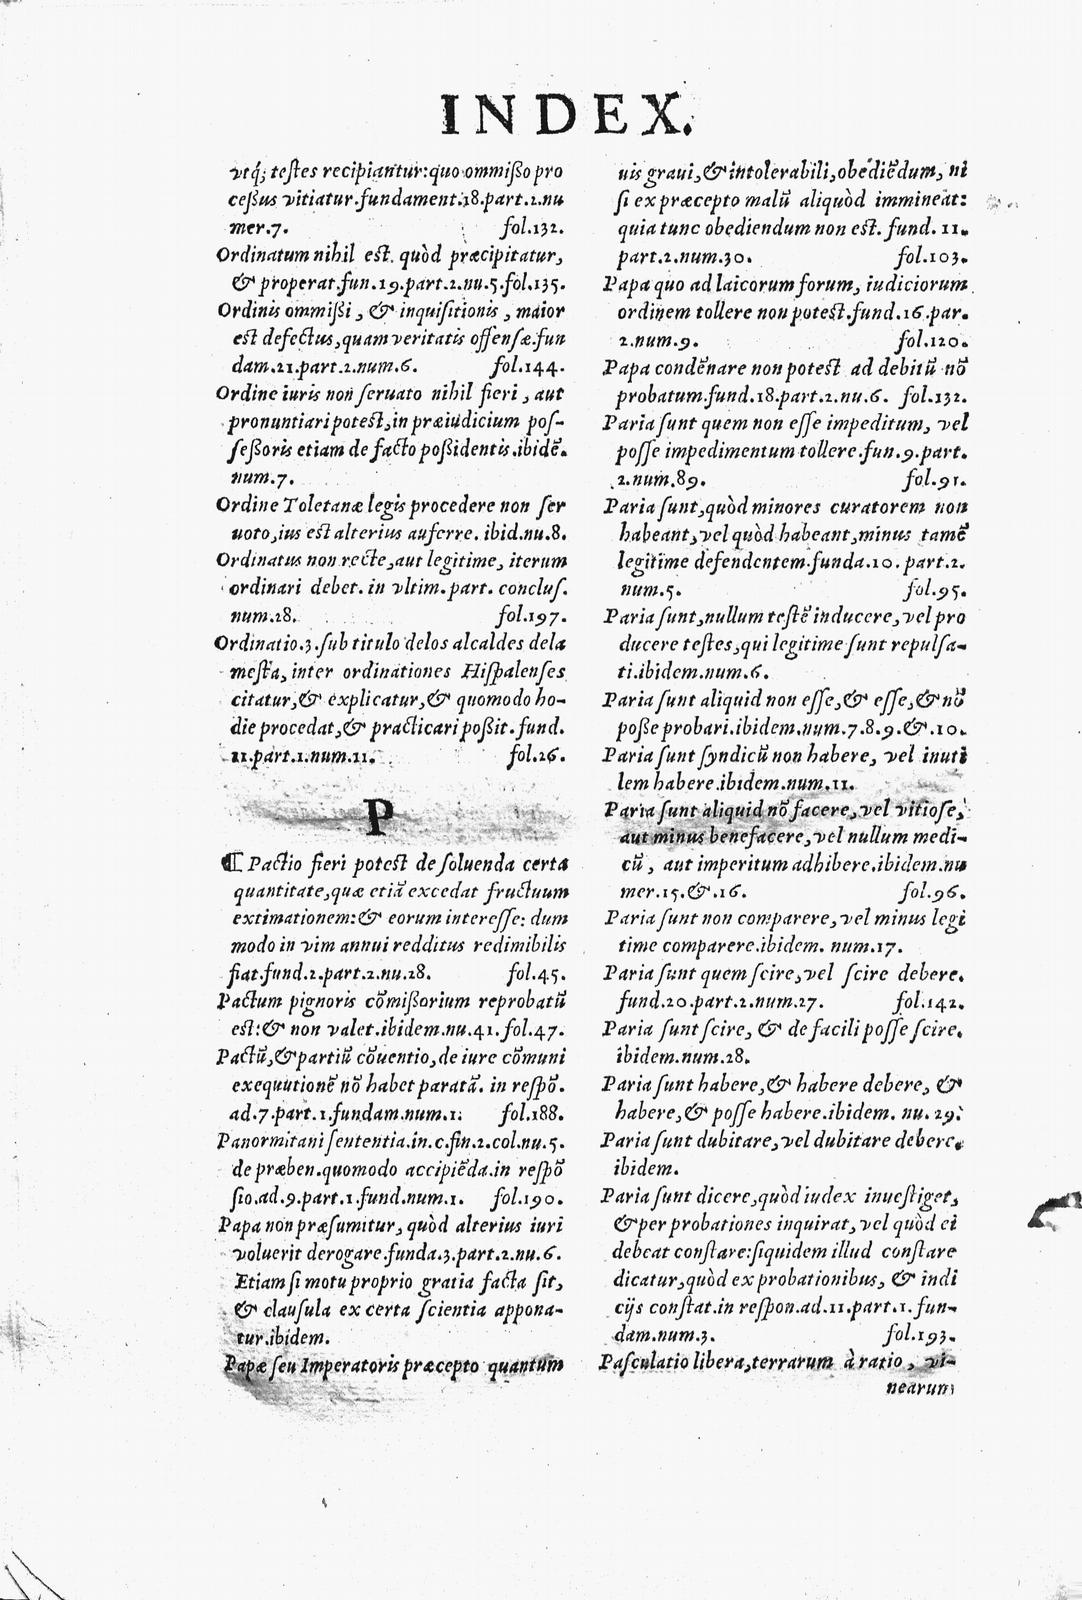 INDEX.
vtq́; teſtes recipiantur: quo ommiſſo pro
ceſſus vitiatur. fundament. 18. part. 2. nu
mer. 7. fol. 132.
Ordinatum nihil est. quòd præcipitatur,
& properat. fun. 19. part. 2. nu. 5. fol. 135.
Ordinis ommiſſi, & inquiſitionis, maior
est defectus, quam veritatis offenſæ. fun
dam. 21. part. 2. num. 6. fol. 144.
Ordine iuris non ſeruato nihil fieri, aut
pronuntiari potest, in præiudicium poſ-
ſeſſoris etiam de facto poſſidentis. ibidẽ.
num. 7.
Ordine Toletanæ legis procedere non ſer
uoto, ius est alterius auferre. ibid. nu. 8.
Ordinatus non recte, aut legitime, iterum
ordinari debet. in vltim. part. concluſ.
num. 28. fol. 197.
Ordinatio. 3. ſub titulo delos alcaldes dela
mesta, inter ordinationes Hiſpalenſes
citatur, & explicatur, & quomodo ho-
die procedat, & practicari poſſit. fund.
11. part. 1. num. 11. fol. 26.
P
¶ Pactio fieri potest de ſoluenda certa
quantitate, quæ etiã excedat fructuum
extimationem: & eorum intereſſe: dum
modo in vim annui redditus redimibilis
fiat. fund. 2. part. 2. nu. 28. fol. 45.
Pactum pignoris cõmiſſorium reprobatũ
est: & non valet. ibidem. nu. 41. fol. 47.
Pactũ, & partiũ cõuentio, de iure cõmuni
exequutionẽ nõ habet paratã. in reſpõ.
ad. 7. part. 1. fundam. num. 1. fol. 188.
Panormitani ſententia. in. c. fin. 2. col. nu. 5.
de præben. quomodo accipiẽda. in reſpõ
ſio. ad. 9. part. 1. fund. num. 1. fol. 190.
Papa non præſumitur, quòd alterius iuri
voluerit derogare. funda. 3. part. 2. nu. 6.
Etiam ſi motu proprio gratia facta ſit,
& clauſula ex certa ſcientia appona-
tur. ibidem.
Papæ ſeu Imperatoris præcepto quantum
uis graui, & intolerabili, obediẽdum, ni
ſi ex præcepto malũ aliquòd immineat:
quia tunc obediendum non est. fund. 11.
part. 2. num. 30. fol. 103.
Papa quo ad laicorum forum, iudiciorum
ordinem tollere non potest. fund. 16. par.
2. num. 9. fol. 120.
Papa condẽnare non potest ad debitũ nõ
probatum. fund. 18. part. 2. nu. 6. fol. 132.
Paria ſunt quem non eſſe impeditum, vel
poſſe impedimentum tollere. fun. 9. part.
2. num. 89. fol. 91.
Paria ſunt, quòd minores curatorem non
habeant, vel quòd habeant, minus tamẽ
legitime defendentem. funda. 10. part. 2.
num. 5. fol. 95.
Paria ſunt, nullum teſtẽ inducere, vel pro
ducere teſtes, qui legitime ſunt repulſa-
ti. ibidem. num. 6.
Paria ſunt aliquid non eſſe, & eſſe, & nõ
poſſe probari. ibidem. num. 7. 8. 9. &. 10.
Paria ſunt ſyndicũ non habere, vel inuti
lem habere. ibidem. num. 11.
Paria ſunt aliquid nõ facere, vel vitioſe,
aut minus benefacere, vel nullum medi-
cũ, aut imperitum adhibere. ibidem. nu
mer. 15. &. 16. fol. 96.
Paria ſunt non comparere, vel minus legi
time comparere. ibidem. num. 17.
Paria ſunt quem ſcire, vel ſcire debere.
fund. 20. part. 2. num. 27. fol. 142.
Paria ſunt ſcire, & de facili poſſe ſcire.
ibidem. num. 28.
Paria ſunt habere, & habere debere, &
habere, & poſſe habere. ibidem. nu. 29.
Paria ſunt dubitare, vel dubitare debere.
ibidem.
Paria ſunt dicere, quòd iudex inueſtiget,
& per probationes inquirat, vel quòd ei
debeat conſtare: ſiquidem illud conſtare
dicatur, quòd ex probationibus, & indi
cijs conſtat. in reſpon. ad. 11. part. 1. fun-
dam. num. 3. fol. 193.
Paſculatio libera, terrarum à ratio, vi-
nearum